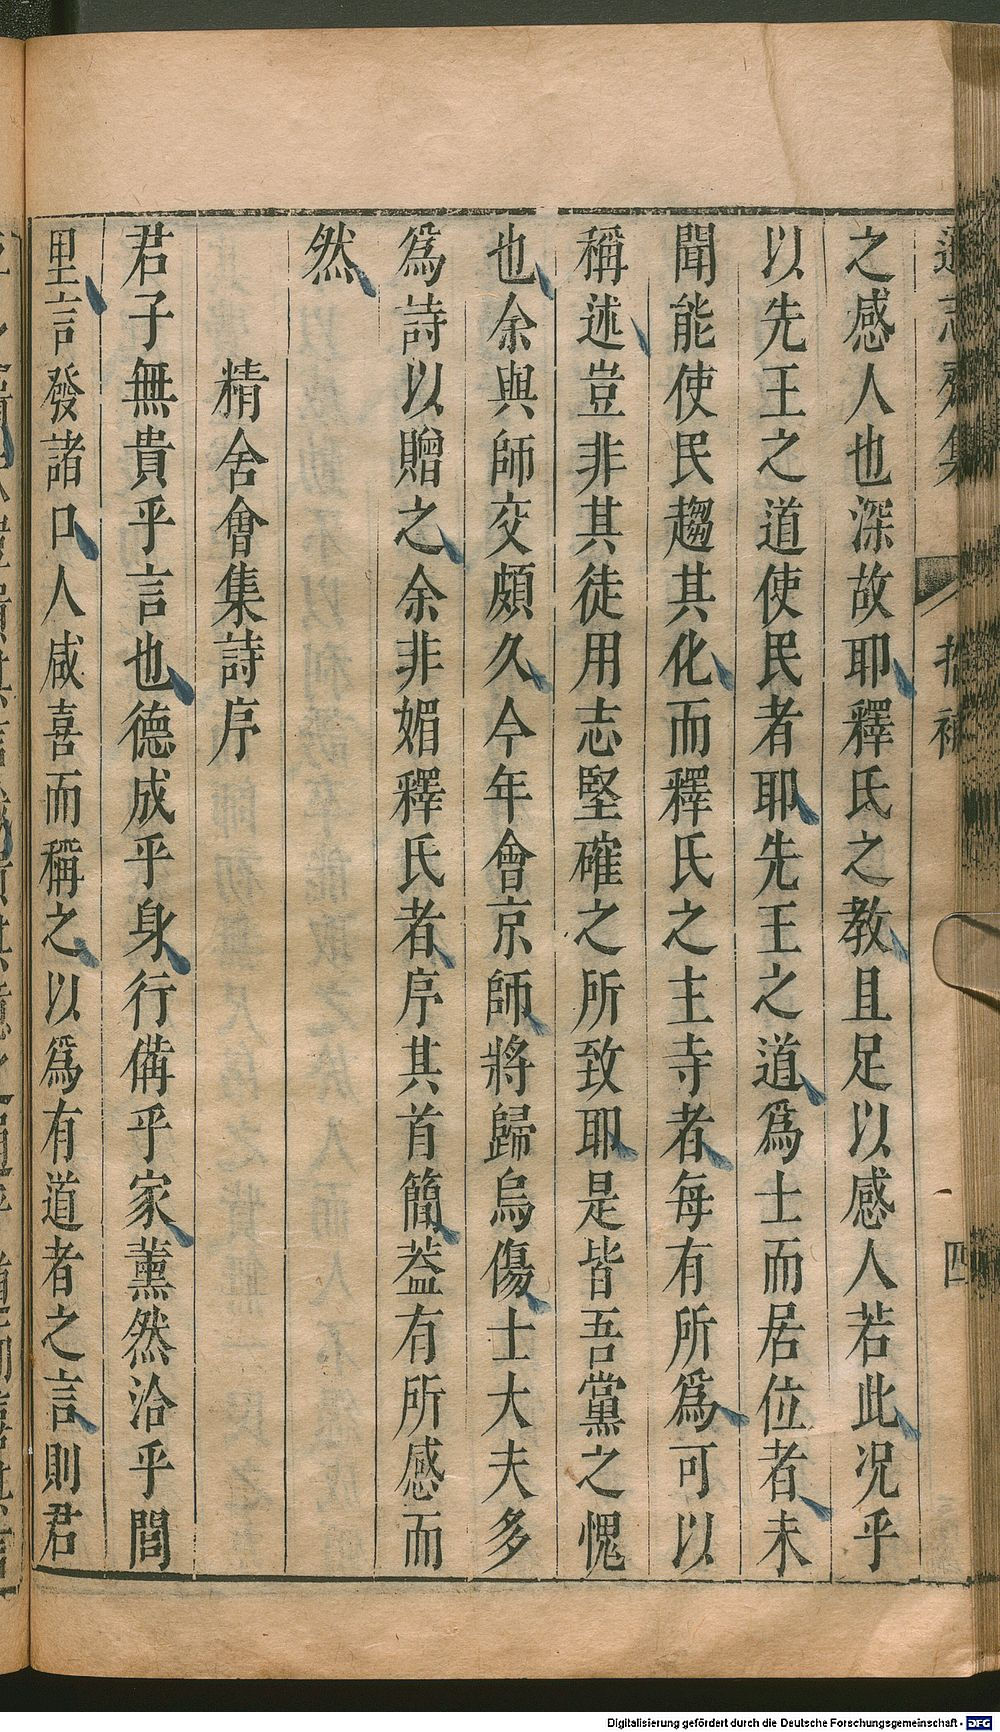 遜志齋集
拾補
四
之感人也深故耶釋氏之教且足以感人若此况乎
以先王之道使民者耶先王之道爲士而居位者未
聞能使民趨其化而釋氏之主寺者每有所爲可以
稱述豈非其徒用志堅確之所致耶是皆吾黨之愧
也余與師交頗久今年會京師將歸烏傷士大夫多
爲詩以贈之余非媚釋氏者序其首簡葢有所感而
然
精舍會集詩序
君子無貴乎言也德成乎身行備乎家薰然洽乎閭
里言發諸口人咸喜而稱之以爲有道者之言則君
Digitalisierung gefördert durch die Deutsche Forschungsgemeinschaft - DFG